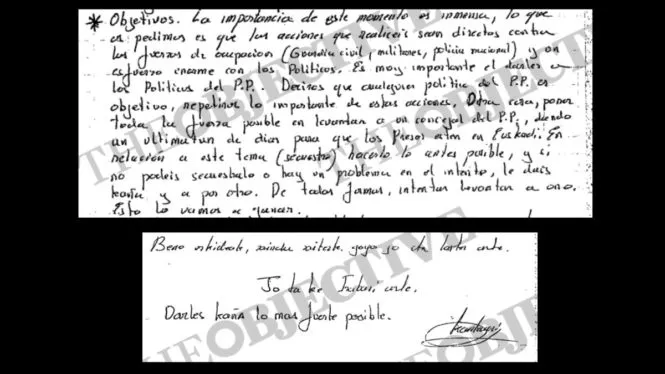 * Objetivos. La importancia de este momento es inmensa, lo que
os pedimos es que las acciones que realiceis sean directas contra
las fuerzas de ocupacion (Guardia civil, militares, policia nacional) y un
esfuerzo enorme con los Politicos. Es muy importante el darles a
los Politicos del P.P.. Deciros que cualquier politico del P.P es
objetivo, repetiros lo importante de estas acciones. Otra cosa, poner
toda la fuerza posible en levantar a un concejal del P.P., dando
un ultimatun de dias para que los Presos esten en Euskadi. En
relación a este tema (secuestro) hacerlo lo antes posible, y si
no podeis secuestralo o hay un problema en el intento, le dais
kaña y a por otro. De todas formas, intentar levantar a uno.
Esto lo vamos a ganar.
Beno
Jo ta ke arte.
Darles kaña lo mas fuerte posible.
THE OBJECTIVE
THE OBJECTIVE